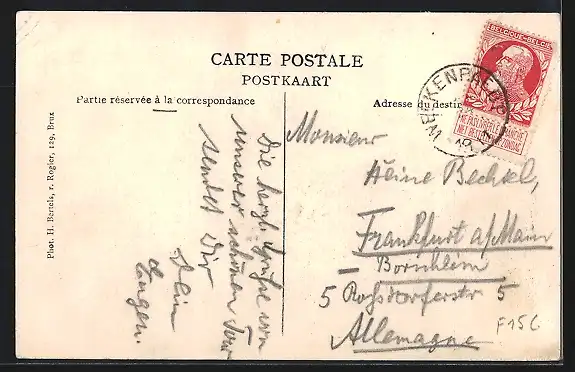 CARTE POSTALE
POSTKAART
Partie réservée à la correspondance
Adresse du destin
BELGIQUE·BELGIË
NE PAS LIVRER LE DIMANCHE
NIET BESTELLEN OP ZONDAG
Phot. H. Bertels, r. Rogier, 129, Brux
Die herzl. Grüße von
unserer schönen Tour
sendet Dir
Dein
Eugen.
Monsieur
Heine Bechtel,
Frankfurt a/Main
– Bornheim
5 Roßdorferstr 5
Allemagne
F 15 C